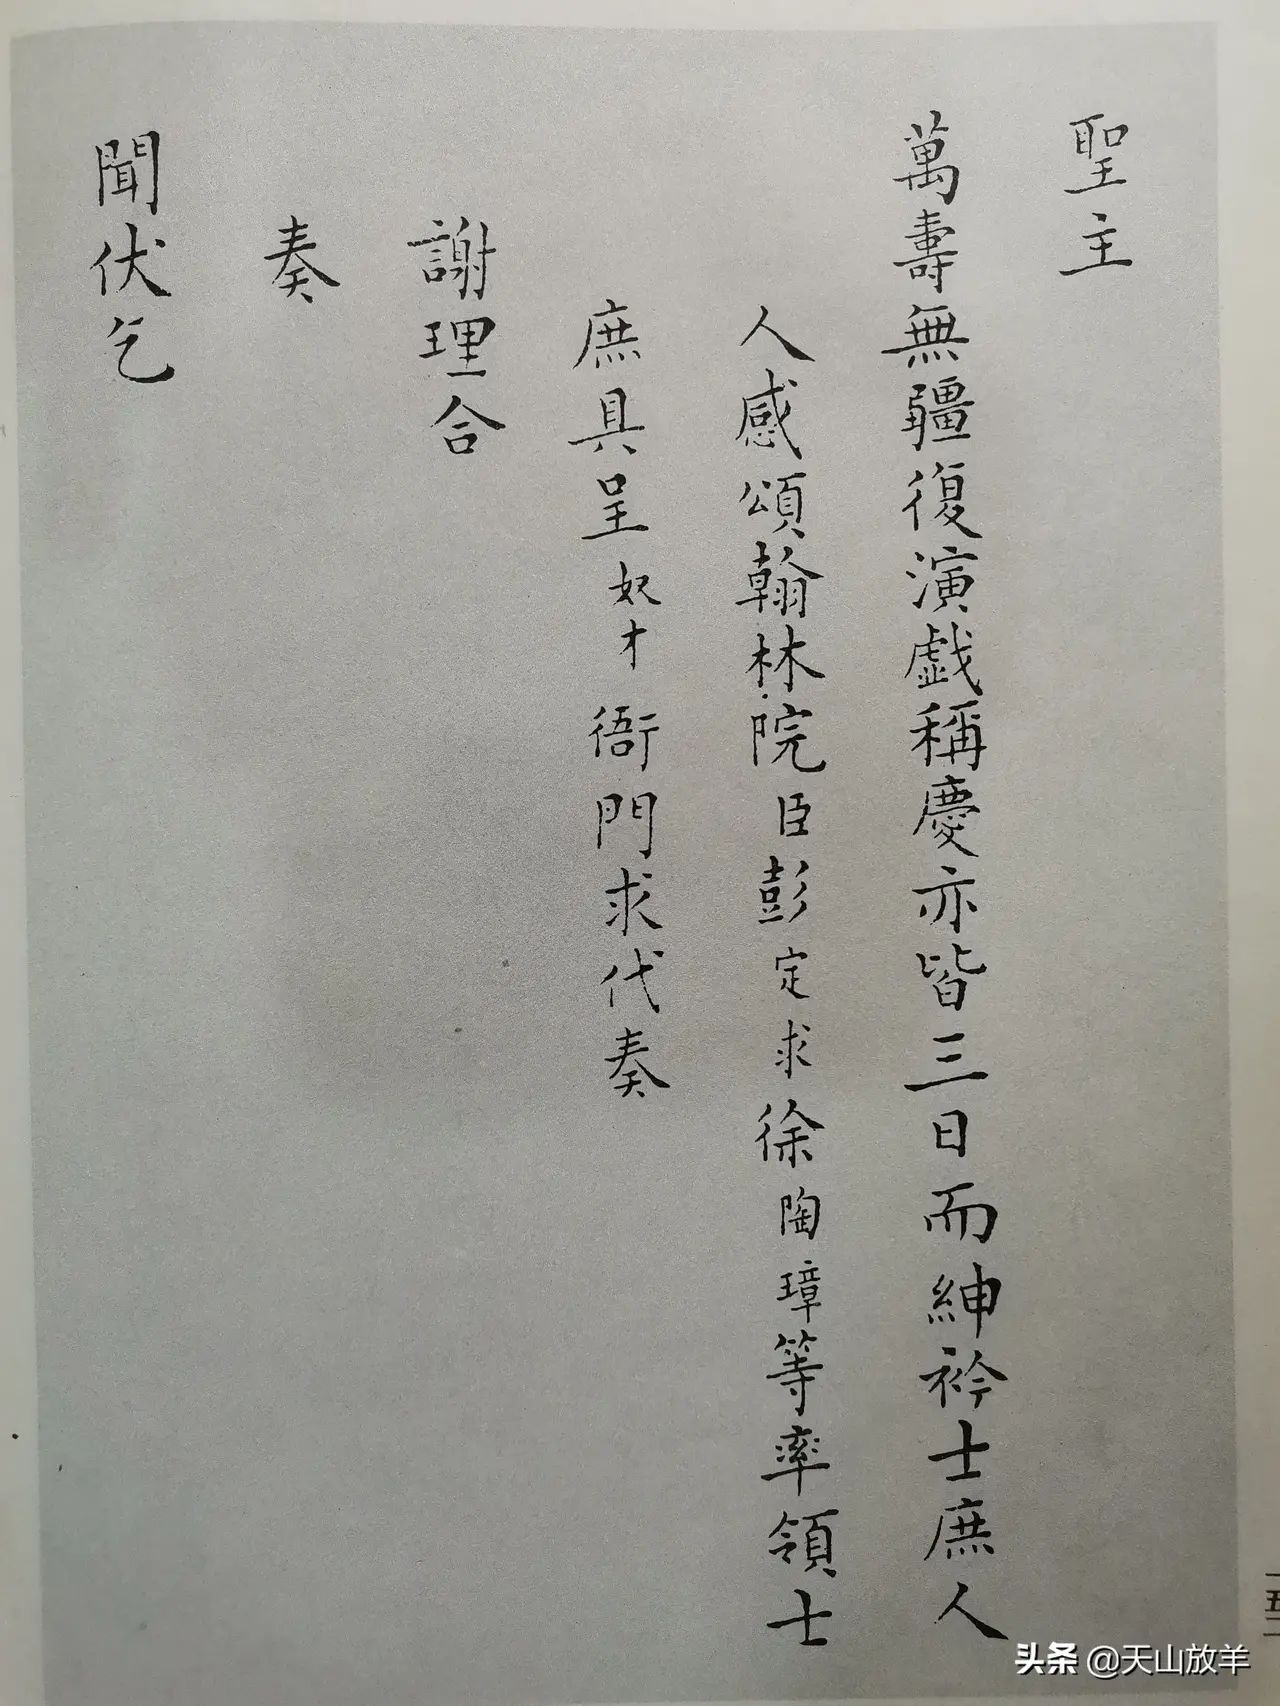 聖主
萬壽無疆復演戯稱慶亦皆三日而紳衿士庶人
人感頌翰林院臣彭定求徐陶璋等率領士
庶具呈奴才衙門求代奏
謝理合
奏
聞伏乞
一五二
头条 @天山放羊